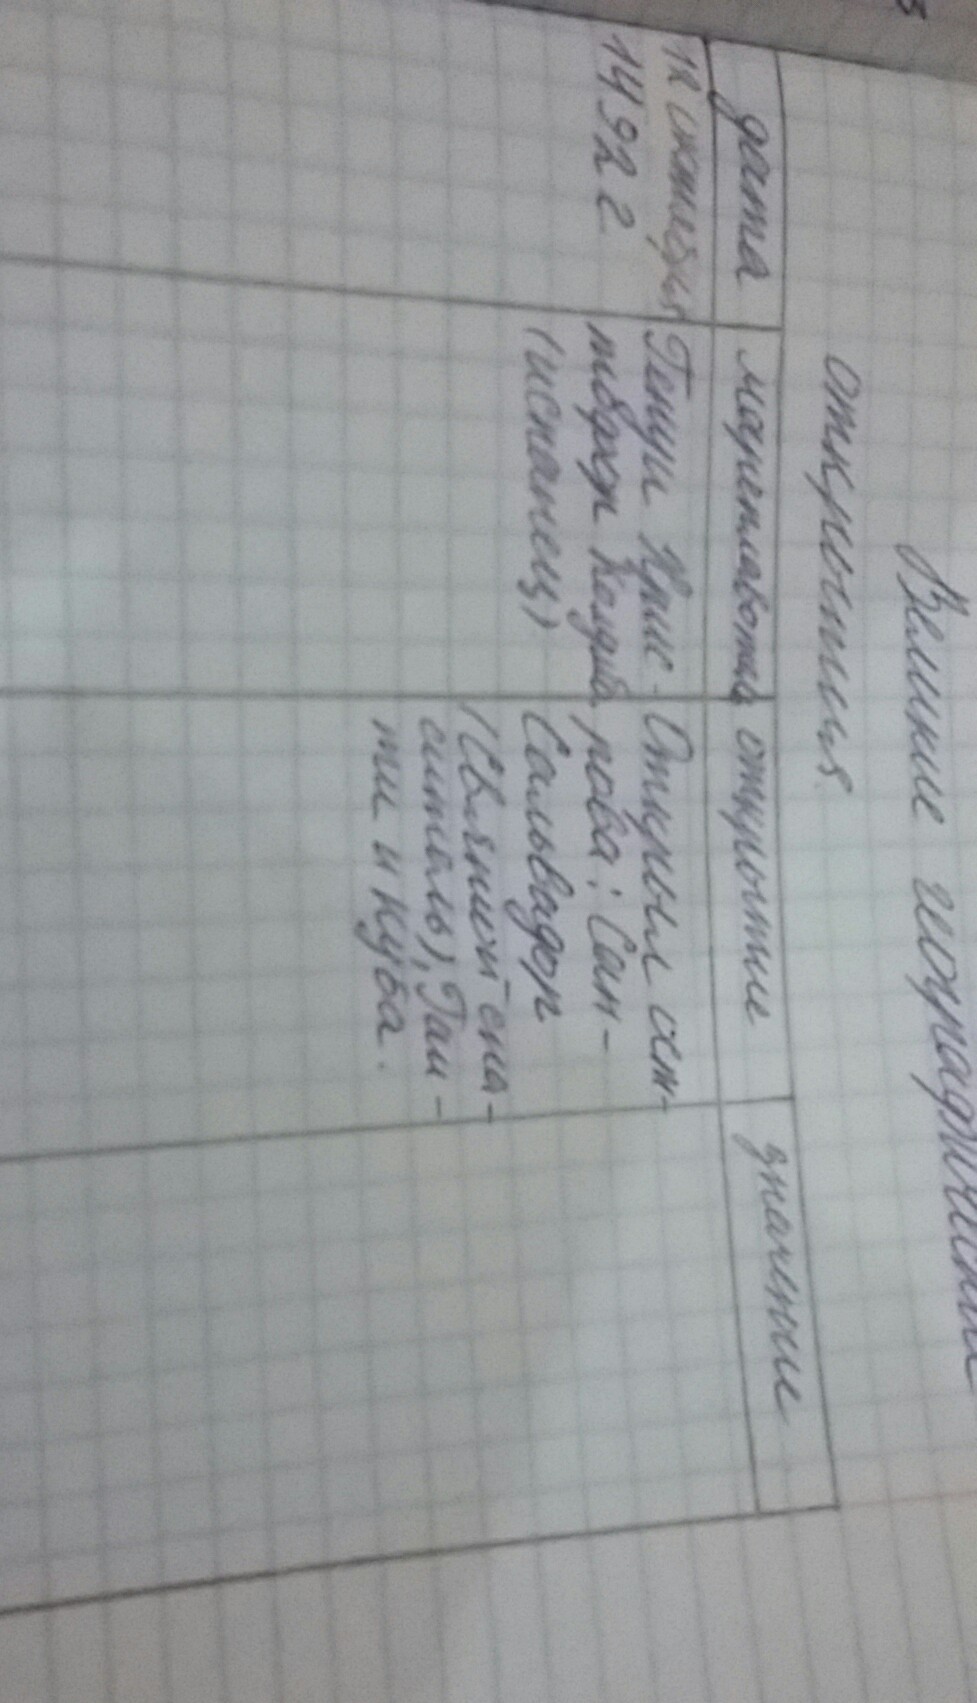 Великие географические
открытия.
дата
мореплаватель
открытие
значение
12 октября
1492 г
Генуи Крис-
тофор Колумб
(испанец)
Открыл ост-
рова: Сан-
Сальвадор
(Святой спа-
ситель), Гаи-
ти и Куба.